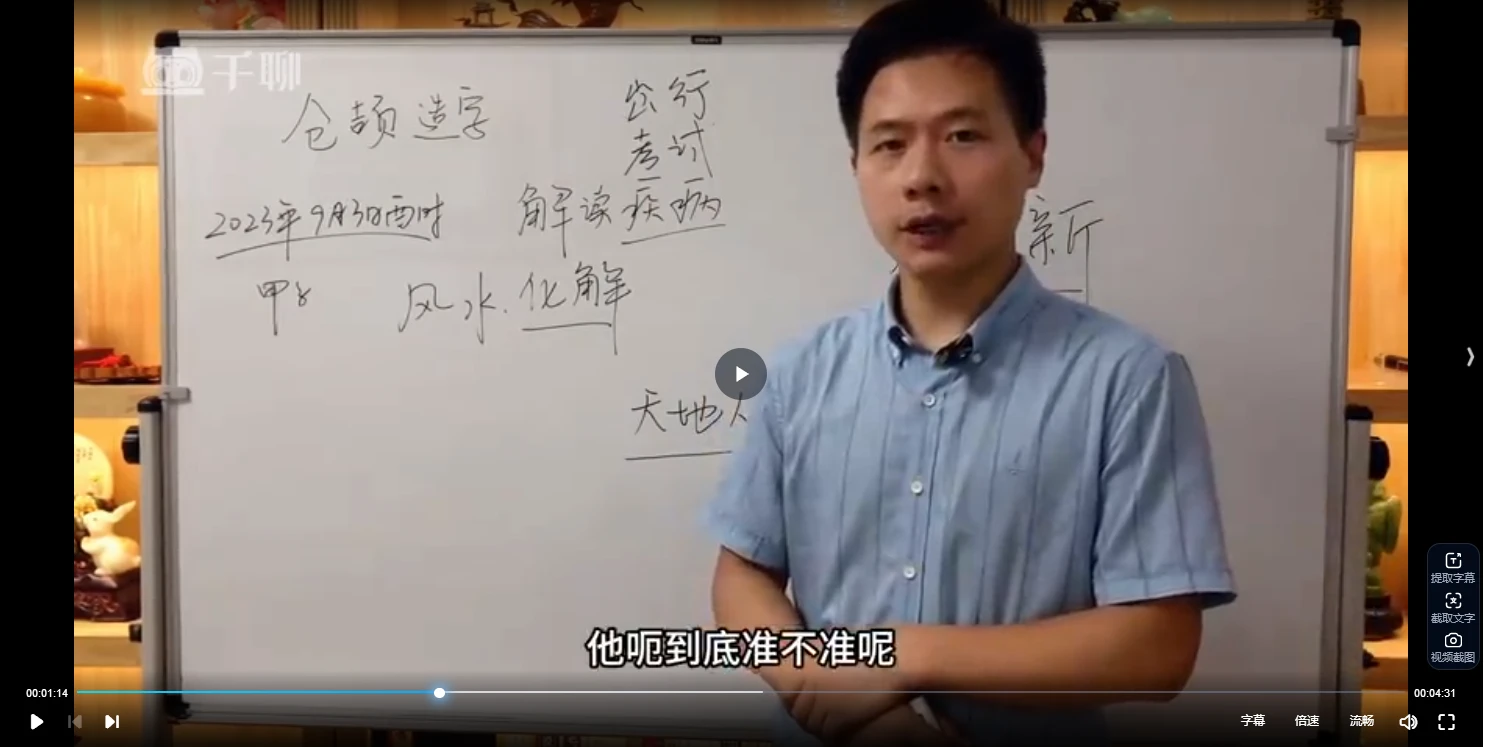 千聊
仓颉造字
出行
考试
2023年9月3日酉时
解读疾病
新
甲子
风水.化解
天地人
他呃到底准不准呢
提取字幕
截取文字
视频截图
00:01:14
00:04:31
字幕
倍速
流畅